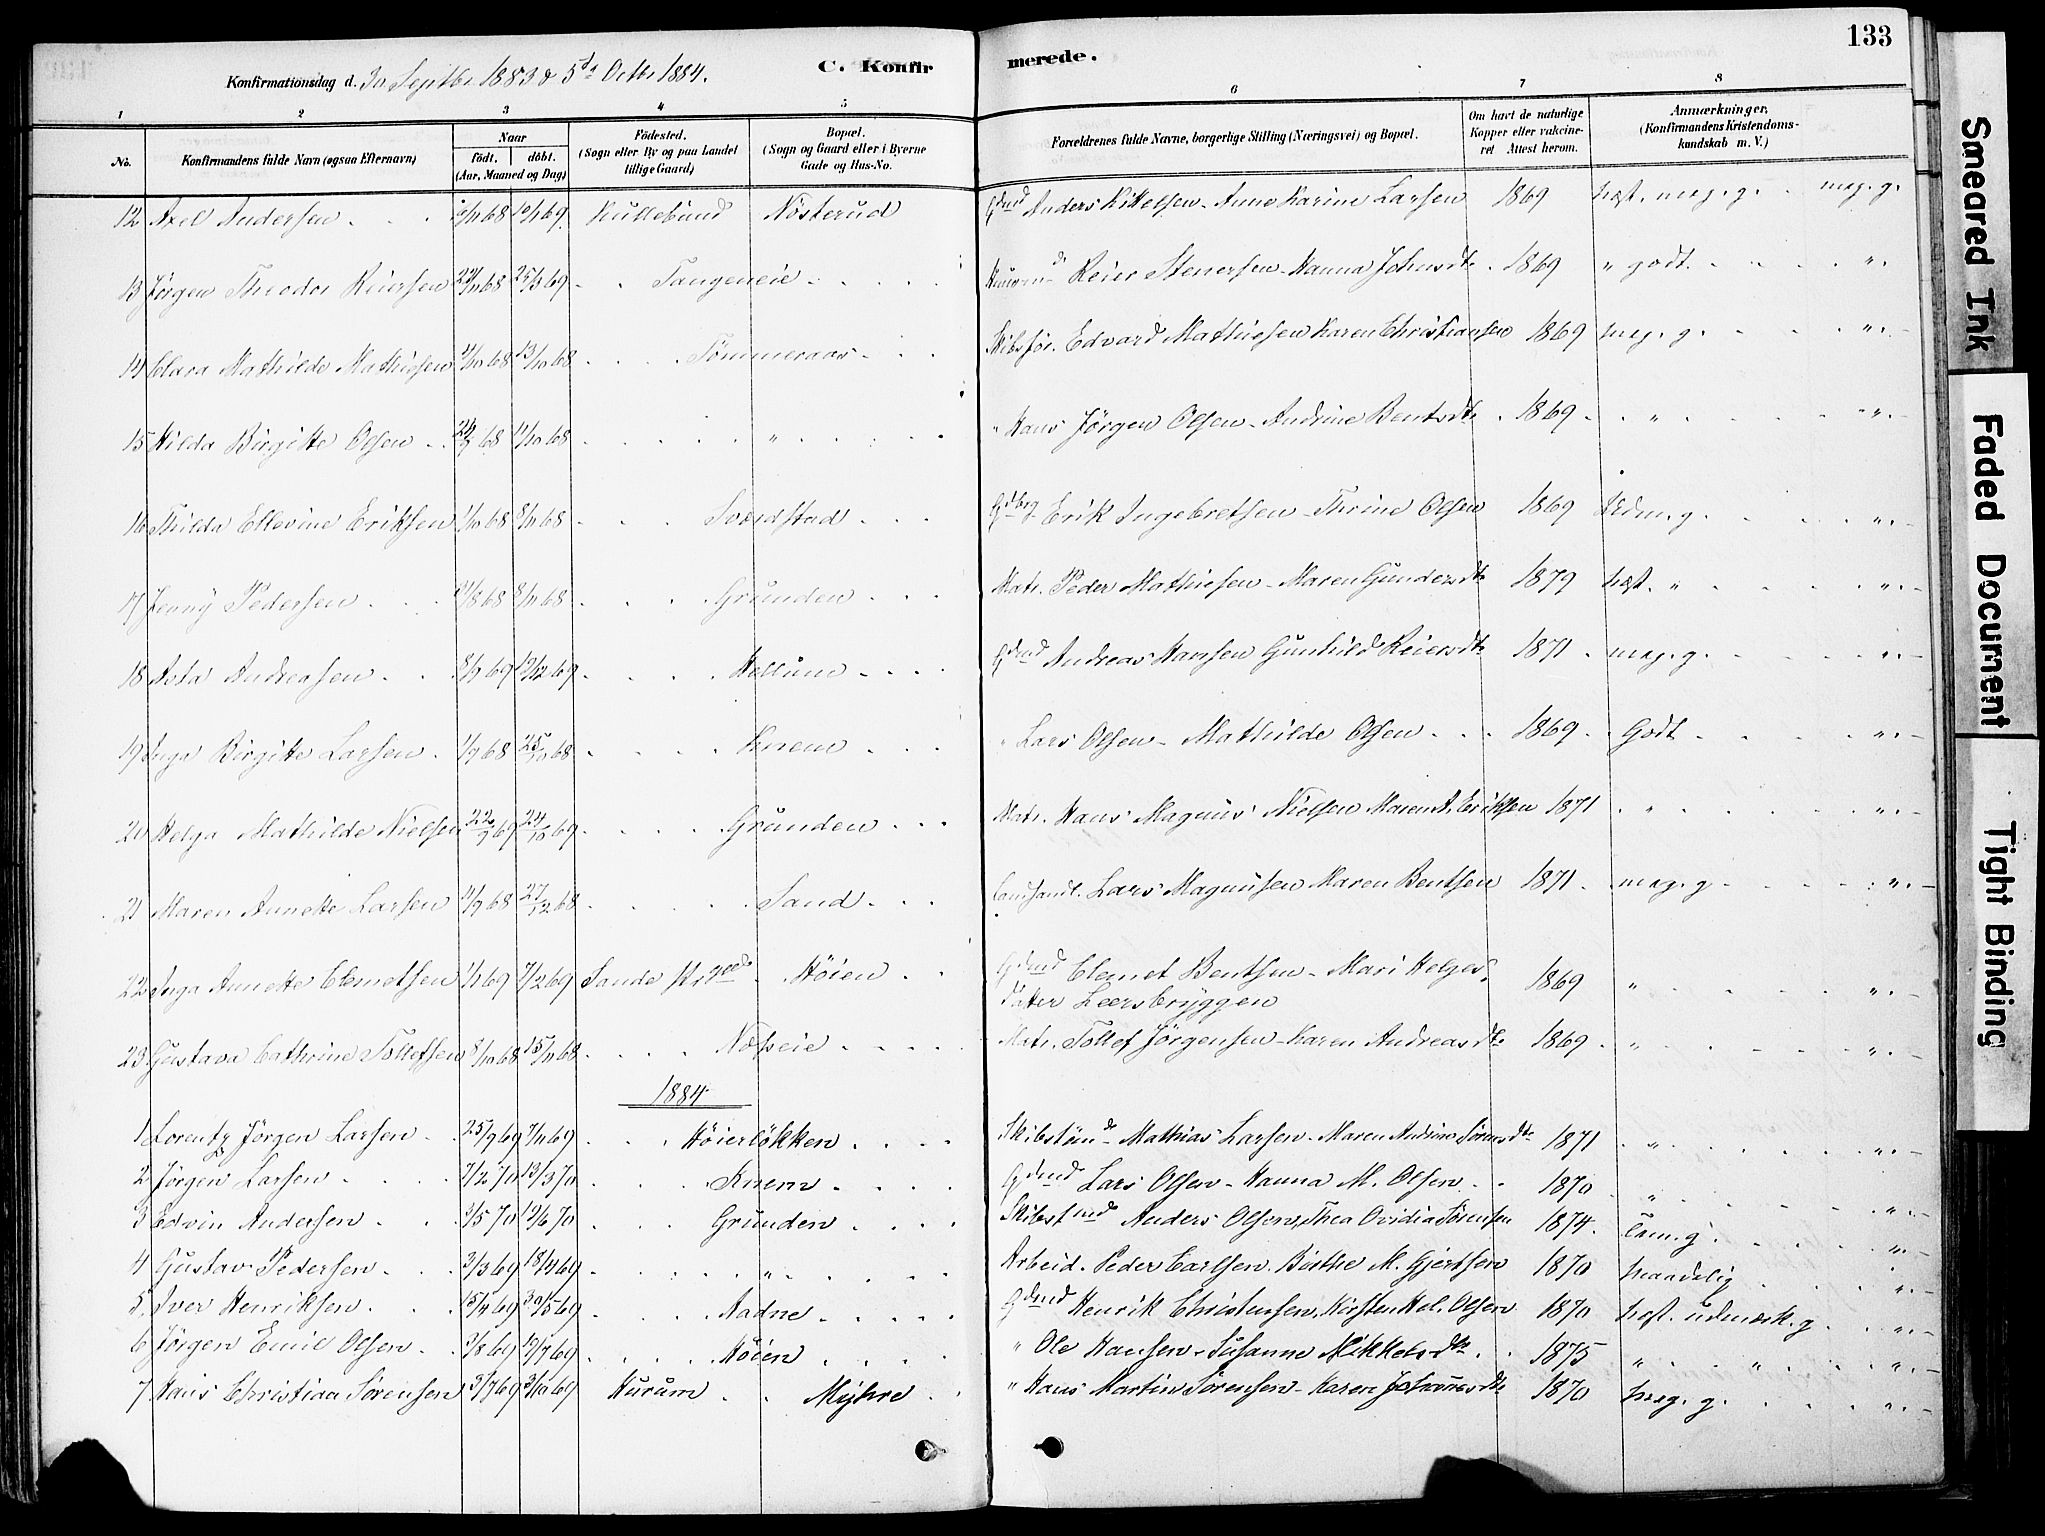 133
Konfirmationsdag d. 30 Septbr 1883 & 5d Octbr 1884. C. Konfir merede.
1 2 3 4 5 6 7 8
No. Konfirmandens fulde Navn (ogsaa Efternavn) Naar födt. döbt. (Aar, Maaned og Dag) Födested. (Sogn eller By og paa Landet tillige Gaard) Bopæl. (Sogn og Gaard eller i Byerne Gade og Hus-No. Forældrenes fulde Navne, borgerlige Stilling (Næringsvei) og Bopæl. Om havt de naturlige Kopper eller vakcineret Attest herom. Anmærkninger, (Konfirmandens Kristendomskundskab m. V.)
12 Axel Andersen 68 69 Hullebund Nösterud Gdmd Anders Kittelsen - Anne Karine Larsen 1869 næst. meg. g. meg. g.
13 Jörgen Theodor Reiersen 22/11 68 25/3 69 Tangeneie Reier Stenersen - Hanna Johnsdt. 1869 " godt "
14 Clara Mathilde Mathiesen 11/10 68 13/10 68 Tömmeraas Skibsför. Edvard Mathiesen Karen Christiansen 1869 meg. g. "
15 Hilda Birgitte Olsen 68 11/10 68 " " Hans Jörgen Olsen - Andrine Bentsdt. 1869 " "
16 Thilda Ellevine Eriksen 1/10 68 8/11 68 Sværdstad Erik Ingebretsen - Thrine Olsen 1869 Udm. g. "
17 Jenny Pedersen 8 68 8/11 68 Grunden Matr. Peder Mathiesen - Maren Gundersdt 1879 næst. " "
18 Asta Andreasen 8/9 69 12/12 69 Hellum Gdmd Andreas Hansen Gunhild Reiersdt 1871 meg. g. "
19 Inga Birgitte Larsen 1/9 68 25/10 68 Knem " Lars Olsen - Mathilde Olsen 1869 Godt "
20 Helga Mathilde Nielsen 22/9 69 24/10 69 Grunden Matr. Hans Magnus Nielsen Maren A. Eriksen 1871 " "
21 Maren Annette Larsen 11/9 68 27/12 68 Sand Lars Magnusen Maren Bentsen 1871 meg. g "
22 Inga Annette Clemetsen 1/1 69 7/2 69 Sande Höien Gdmd Clemet Bentsen - Mari Helges-
datter Leersbryggen 1869 " "
23 Gustava Cathrine Tollefsen 8/10 68 15/11 68 Næseie Matr. Tollef Jörgensen - Karen Andreasdt. 1869 " "
1884
1 Lorentz Jörgen Larsen 25/9 69 7/11 69 Höierlökken Mathias Larsen - Maren Andrine Sörensdt 1871 " "
2 Jörgen Larsen 7/2 70 13/3 70 Knem Gdmd Lars Olsen - Hanna M. Olsen 1870 " "
3 Edvin Andersen 3/5 70 12/6 70 Grunden Anders Olsen, Thea Ovidia Sörensen 1874 Tem. g. "
4 Gustav Pedersen 3/3 69 18/4 69 " Arbeid. Peder Carlsen. Birthe M. Gjertsen 1870 maadelig "
5 Iver Henriksen 15/4 69 30/5 69 Aadne Gdmd Henrik Christensen, Kirsten Hel. Olsen 1870 næst. udmærk. g. "
6 Jörgen Emil Olsen 3/8 69 19/9 69 Höien " Ole Hansen, Susanne Mikkelsdt. 1875 " " "
7 Hans Christian Sörensen 3/7 69 3/10 69 Hurum Myhre " Hans Martin Sörensen - Karen Johannesdt 1870 meg. g. "
Smeared Ink
Faded Document
Tight Binding